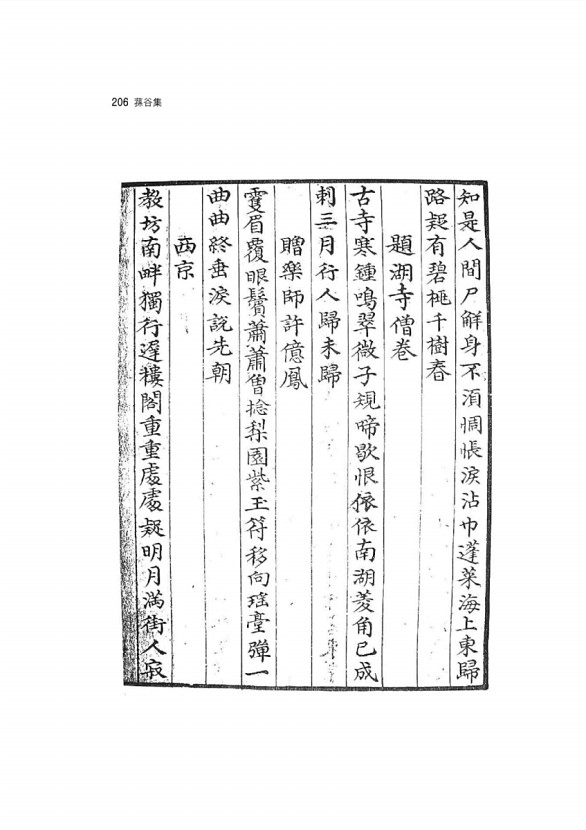 206 蓀谷集
知是人間尸解身不湏惆悵淚沾巾蓬萊海上東歸
路疑有碧桃千樹春
題湖寺僧卷
古寺寒鍾鳴翠微子規啼歇恨依依南湖菱角已成
刺三月行人歸未歸
贈樂師許億鳳
雙眉覆眼鬢蕭蕭曾捻梨園紫玉符移向瑶臺彈一
曲曲終垂淚說先朝
西京
教坊南畔獨行遲樓閣重重處處疑明月滿街人寂